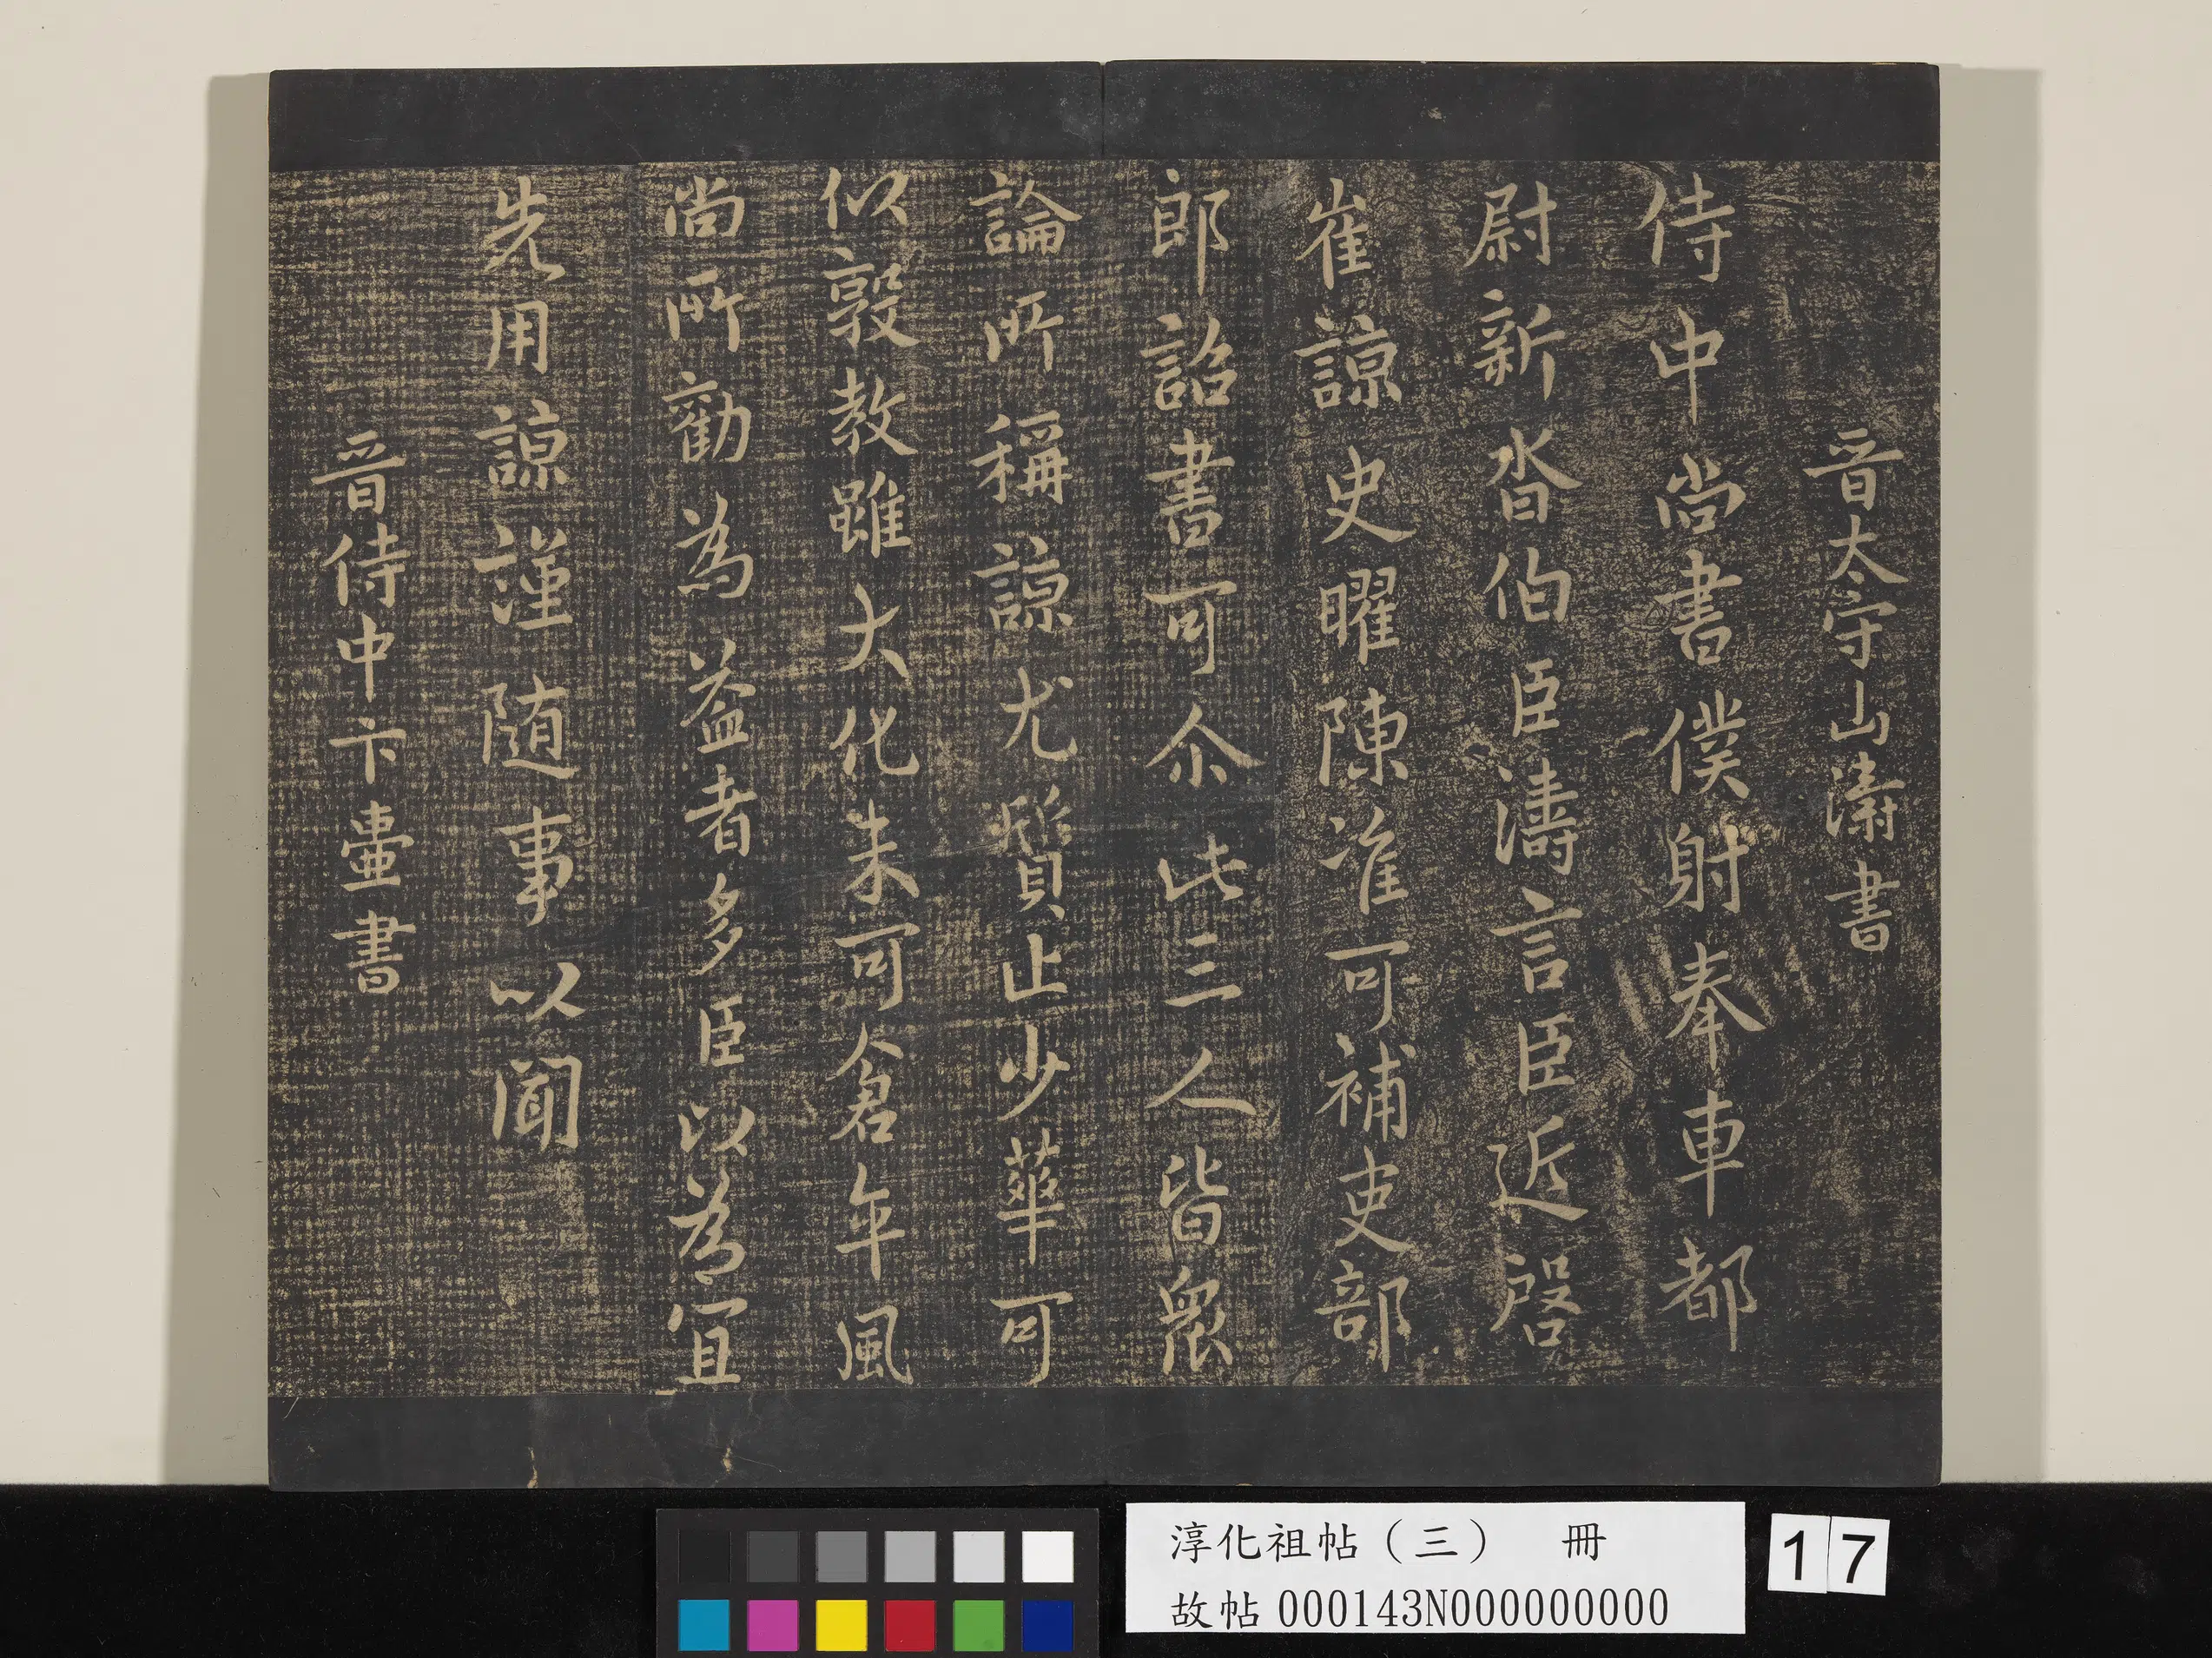 晉太守山濤書
侍中尚書僕射奉車都
尉新沓伯臣濤言臣近啓
崔諒史曜陳准可補吏部
郎詔書可尒此三人皆衆
論所稱諒尤質止少華可
以敦教雖大化未可倉卒風
尚所勸為益者多臣以為宜
先用諒謹随事以聞
晉侍中卞壷書
淳化祖帖（三） 冊
故帖000143N000000000
17